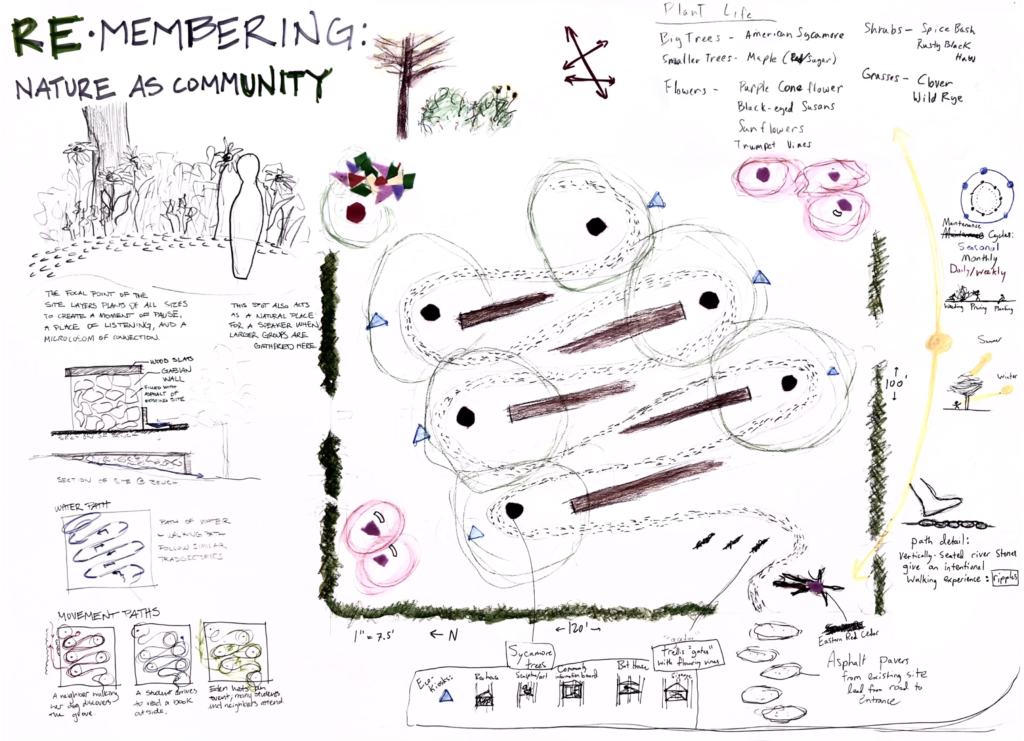 RE·MEMBERING:
NATURE AS COMMUNITY
Plant Life
Big Trees - American Sycamore
Smaller Trees - Maple (Sugar)
Flowers - Purple Cone flower
Black-eyed Susans
Sunflowers
Trumpet Vines
Shrubs - Spice Bush
Rusty Black
Haw
Grasses - Clover
Wild Rye
THE FOCAL POINT OF THE
SITE LAYERS PLANTS OF ALL SIZES
TO CREATE A MOMENT OF PAUSE,
A PLACE OF LISTENING, AND A
MICROCOSM OF CONNECTION.
THIS SPOT ALSO ACTS
AS A NATURAL PLACE
FOR A SPEAKER WHEN
LARGER GROUPS ARE
GATHERED HERE.
WOOD SLATS
GABIAN
WALL
FILLED WITH
ASPHALT OF
EXISTING SITE
SECTION OF
SECTION OF SITE @
WATER PATH
PATH OF WATER
WALKING PATH
FOLLOW SIMILAR
TRAJECTORIES
MOVEMENT PATHS
A neighbor walking
her dog discovers
the grove.
A student arrives
to read a book
outside.
Eden hosts an
event; many students
and neighbors attend.
Maintenance
Cycles:
Seasonal
Monthly
Daily/Weekly
Weeding Pruning Planting
Summer
Winter
100'
path detail:
Vertically-Seated river Stones
give an intentional
Walking experience: ripples
1" = 7.5'
← N
←120'→
Eastern Red Cedar
Asphalt pavers
from existing site
lead from road to
Entrance
Sycamore
trees
Trellis "gates"
with flowering vines
Eco-
Kiosks:
Bee house
Sculpture/art
Community
information board
Bat House
Signage